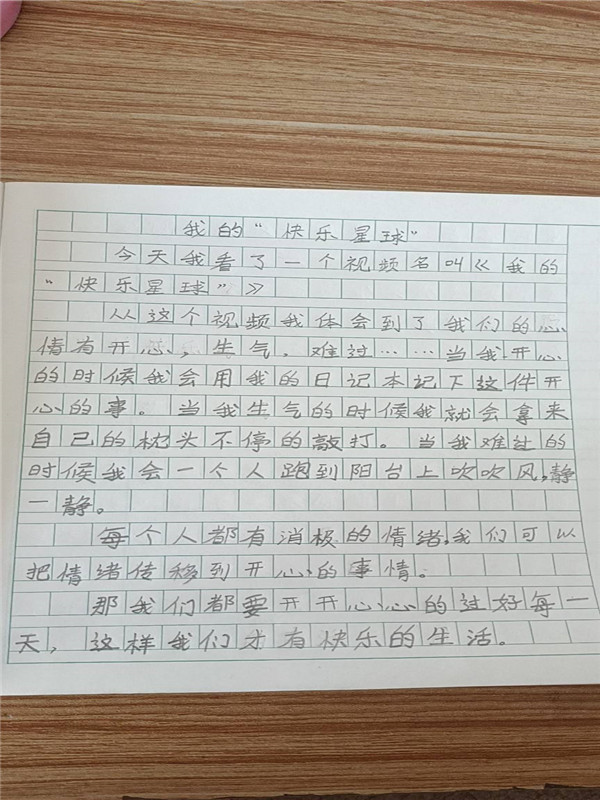 我的“快乐星球”
今天我看了一个视频名叫《我的
“快乐星球”》
从这个视频我体会到了我们的心
情有开心，生气，难过……当我开心
的时候我会用我的日记本记下这件开
心的事。当我生气的时候我就会拿来
自己的枕头不停的敲打。当我难过的
时候我会一个人跑到阳台上吹吹风，静
一静。
每个人都有消极的情绪，我们可以
把情绪传移到开心的事情。
那我们都要开开心心的过好每一
天，这样我们才有快乐的生活。